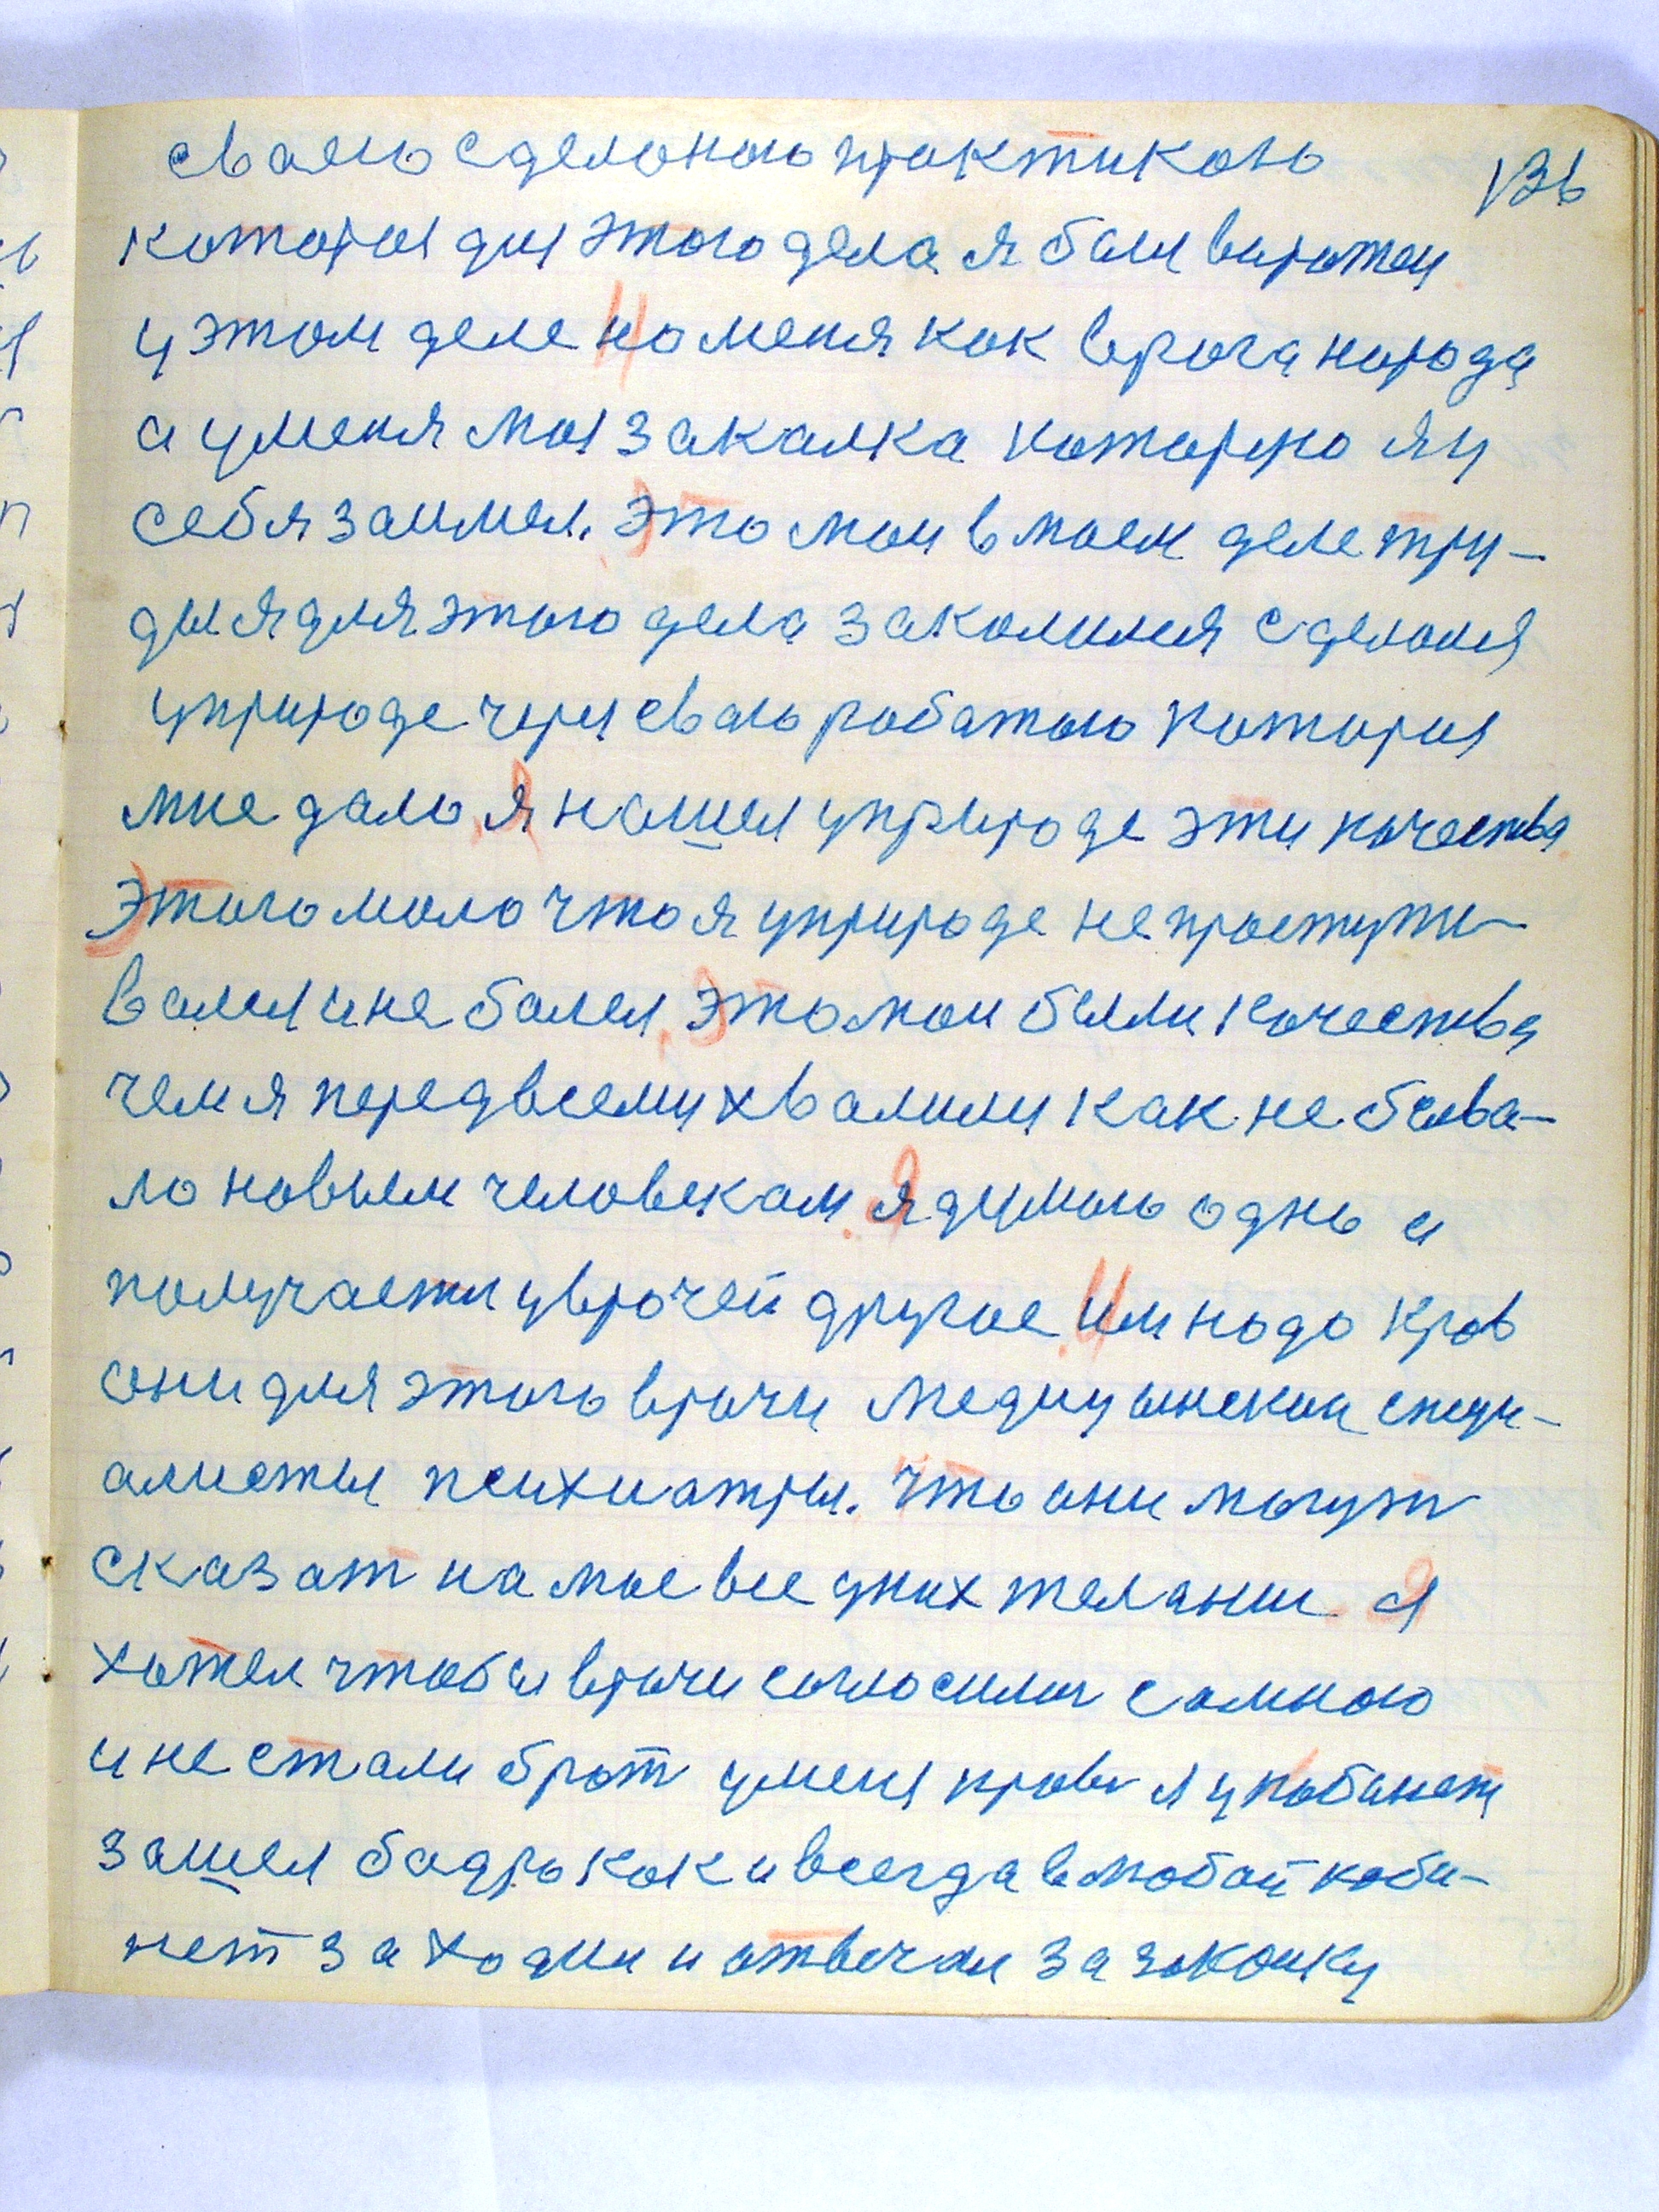 136
сваею сделоною практикою
которая для этого дела я был выражен
у этом деле на меня как врога народа
а у меня моя закалка которую я у
себя заимел. Это мои в моем деле тру-
ды я для этого дела заколился сделался
у природе через сваю работаю которая
мне даль. Я нашел у природе эти качества
Этого мало что я у природе не простужи-
вался и не балел. Это мои были качества
чем я перед всему хвалился как не быва-
ло новыем человекам. Я думаю однь а
получается у врочей другое. Им надо кров
они для этого врачи медицынскии специ-
алисты психиатры. Что они могут
сказат на мое все у них желании. Я
хотел чтобы врачи согласилис самною
и не стали брат у меня крови я у кабинет
зашел бадрь как и всегда в любой каби-
нет заходил и отвечал за закалку